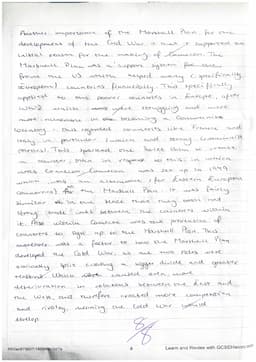 Another importance of the Marshall Plan for the
development of the Cold War is that it supported an
initial reason for the making of Comecon. The
Marshall Plan was a support system for
from the US which helped many (specifically
European) countries financially. This specifically
applied to the poorer countries in Europe after
WW2 which were yet struggling and were
more in becoming a Communist
country. This regarded countries like France and
Italy in particular (which had strong Communist
parties). This sparked that Soviet Union to create
a reason, then in response to this in which
was Comecon. Comecon was set up in 1949
which was an alternative (for Eastern European
countries) for the Marshall Plan. It was fairly
similar in the sense that they both had
strong trade links between the countries within
it. Also within Comecon was the prevention of
countries to sign up to the Marshall Plan. This
therefore was a factor to how the Marshall Plan
developed the Cold War, as the two sides were
evidently split creating a bigger divide and greater
tension. Which caused even more
deterioration in relations between the East and
the West, and therefore created more competition
and rivalry, meaning the Cold War would
develop.
8/8
8
Learn and Revise with GCSEHaven.com